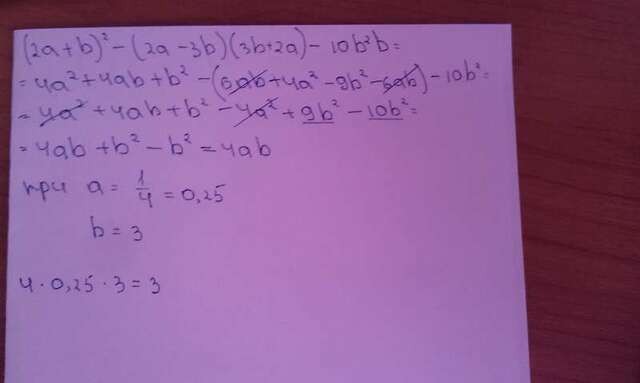 (2a+b)² - (2a-3b)(3b+2a) - 10b²b =
= 4a² + 4ab + b² - (6ab + 4a² - 9b² - 6ab) - 10b² =
= 4a² + 4ab + b² - 4a² + 9b² - 10b² =
= 4ab + b² - b² = 4ab
при a = 1/4 = 0,25
b = 3
4 · 0,25 · 3 = 3